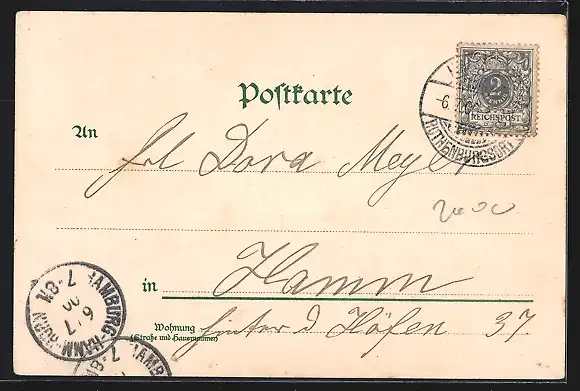 2
REICHSPOST
ROTHENBURGSORT
Postkarte
An frl Dora Meyer
in Hamm
Wohnung
(Straße und Hausnummer)
hinter d Höfen 37.
HAMBURG-HAMM
6/7
00
7-8N.